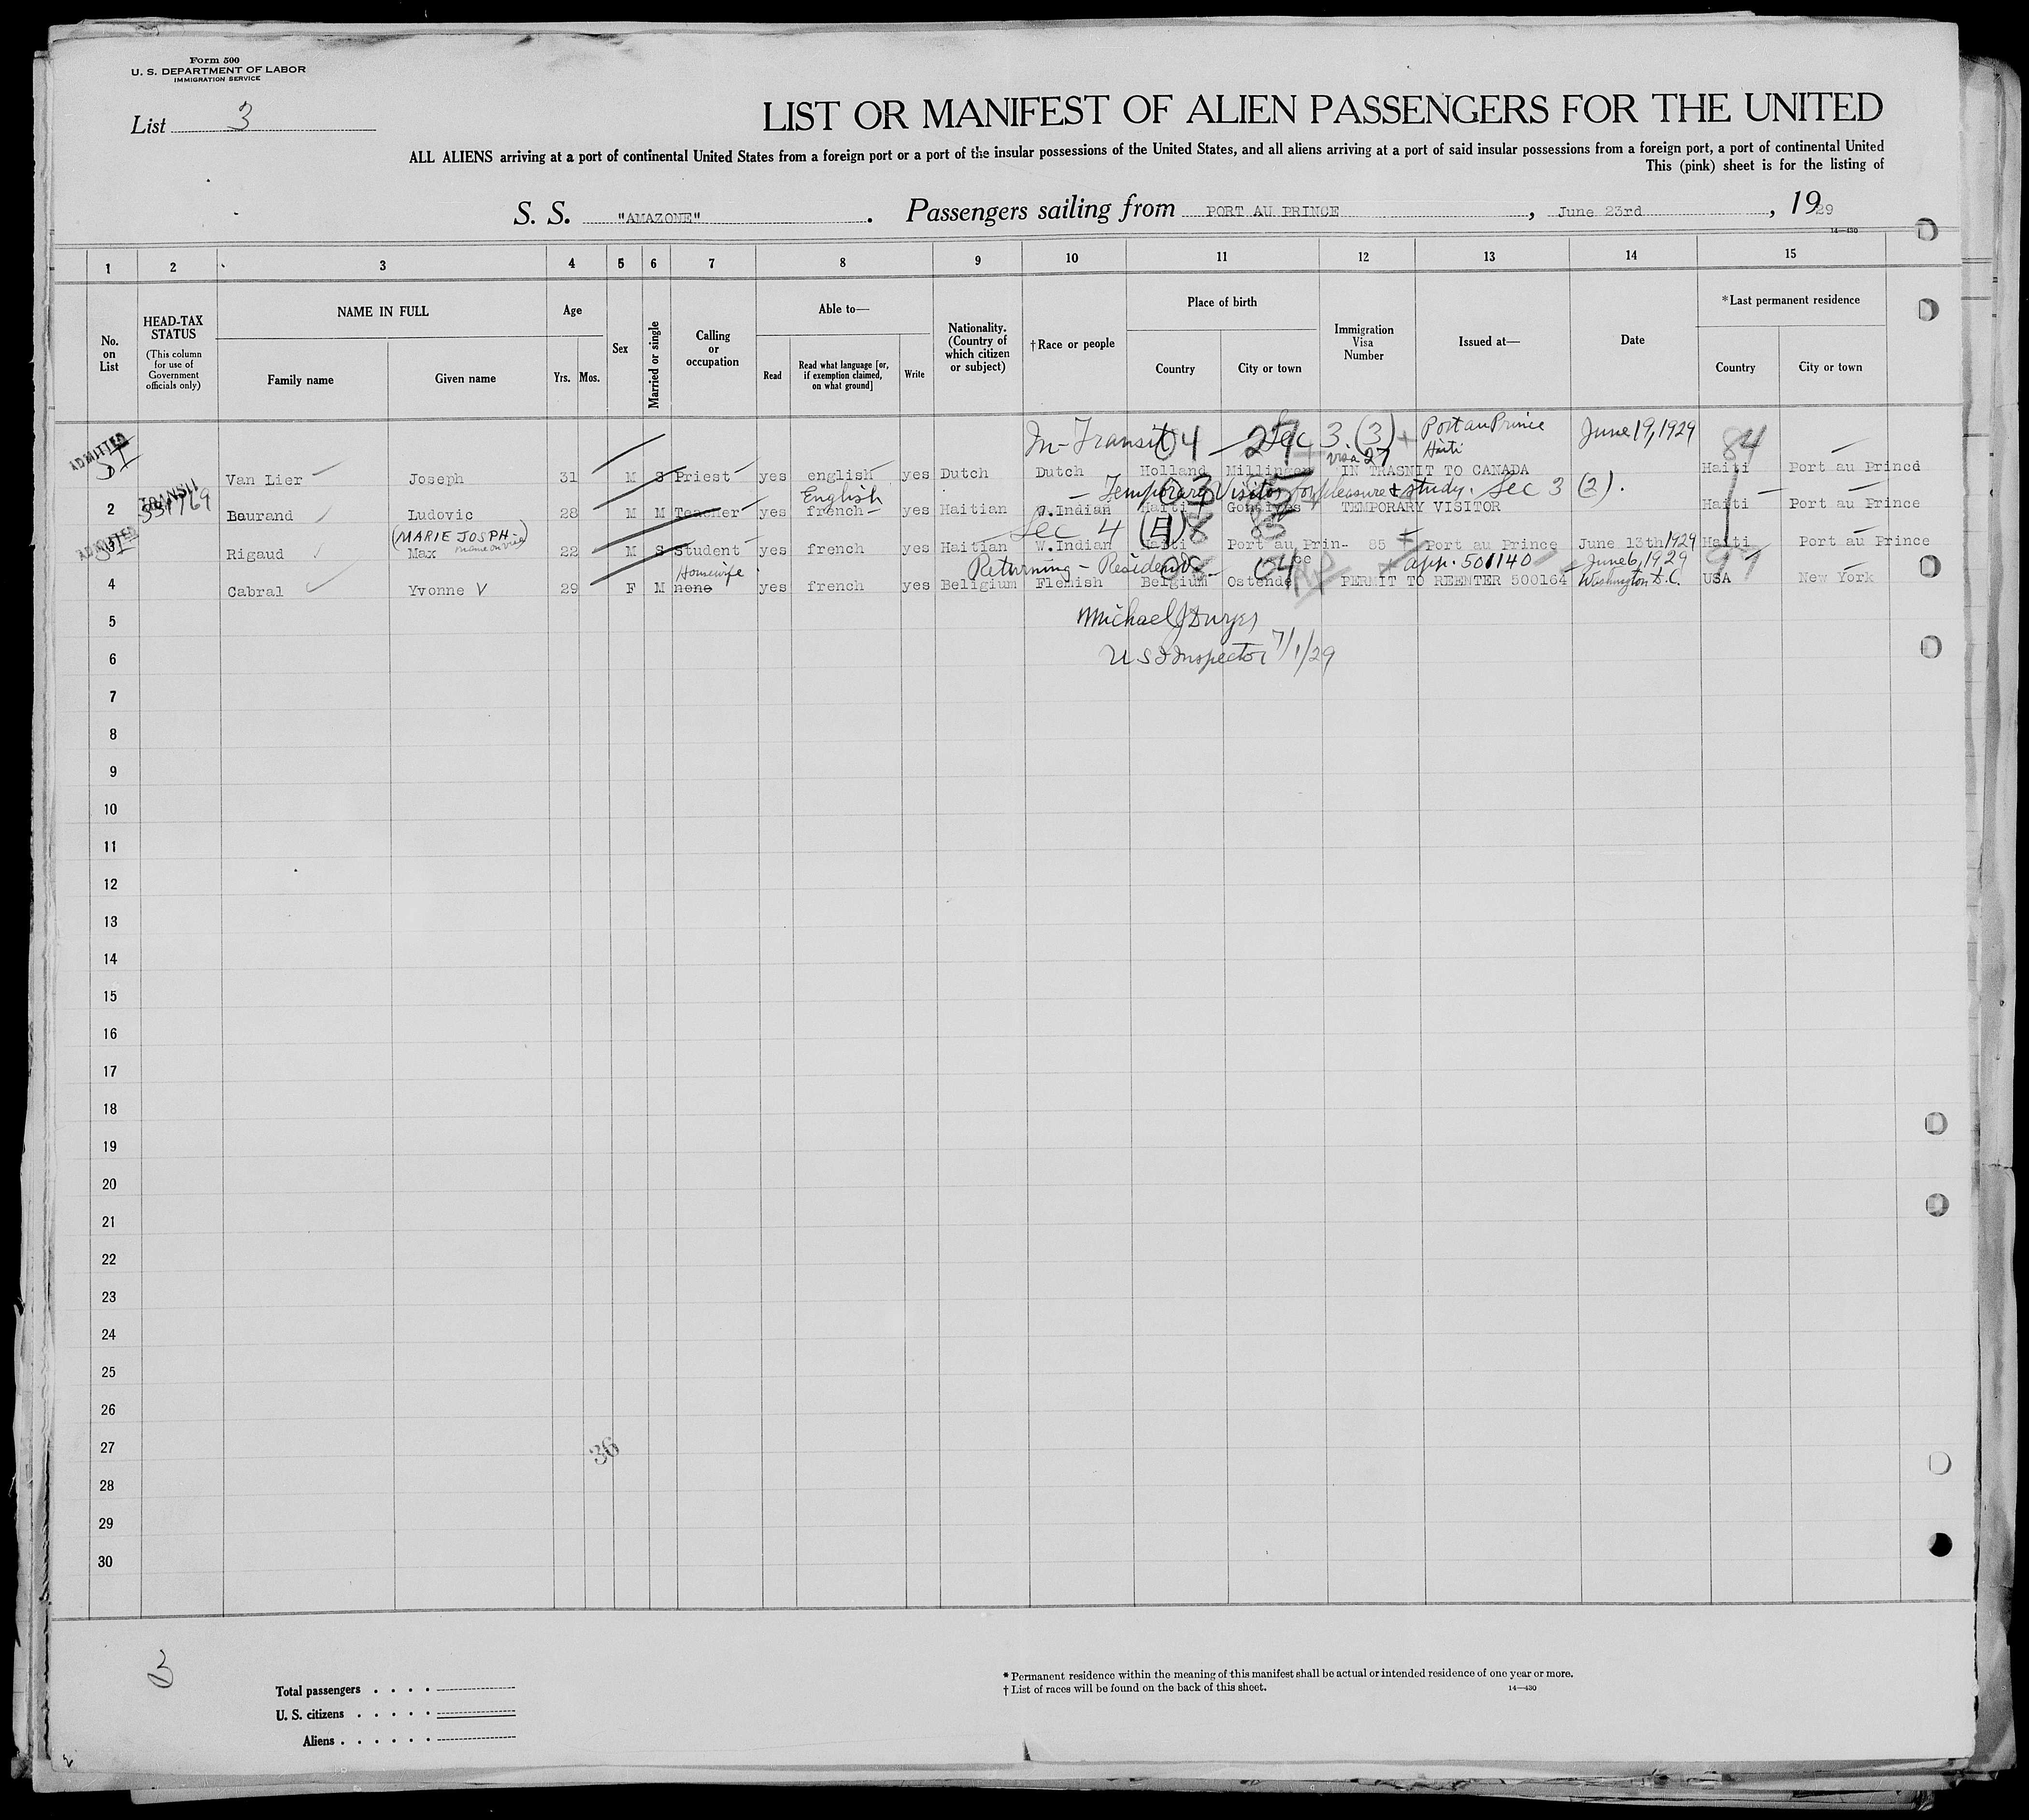 Form 500
U. S. DEPARTMENT OF LABOR
IMMIGRATION SERVICE
List 3
LIST OR MANIFEST OF ALIEN PASSENGERS FOR THE UNITED
ALL ALIENS arriving at a port of continental United States from a foreign port or a port of the insular possessions of the United States, and all aliens arriving at a port of said insular possessions from a foreign port, a port of continental United
This (pink) sheet is for the listing of
S. S. "AMAZONE". Passengers sailing from PORT AU PRINCE, June 23rd, 1929
14—430
1 2 3 4 5 6 7 8 9 10 11 12 13 14 15
No. on List
HEAD-TAX STATUS
(This column for use of Government officials only)
NAME IN FULL
Family name
Given name
Age
Yrs. Mos.
Sex
Married or single
Calling or occupation
Able to—
Read
Read what language [or, if exemption claimed, on what ground]
Write
Nationality. (Country of which citizen or subject)
†Race or people
Place of birth
Country
City or town
Immigration Visa Number
Issued at—
Date
*Last permanent residence
Country
City or town
In-Transit 04 27 Sec 3. (3) Port au Prince Haiti June 19, 1929 84
visa 27
ADMITTED Van Lier Joseph 31 M S Priest yes english yes Dutch Dutch Holland Millingen IN TRASNIT TO CANADA Haiti Port au Princd
TRANSIT
English — Temporary Visitor for pleasure & study. Sec 3 (2).
2 Baurand Ludovic 28 M M Teacher yes french yes Haitian W.Indian Haiti Gonaives TEMPORARY VISITOR Haiti Port au Prince
(MARIE JOSPH name on visa) Sec 4
ADMITTED Rigaud Max 22 M S Student yes french yes Haitian W.Indian Haiti Port au Prin-ce 85 Port au Prince June 13th 1929 Haiti Port au Prince
Housewife Returning - Resident app. 501140 June 6, 1929
4 Cabral Yvonne V 29 F M none yes french yes Beligium Flemish Belgium Ostende PERMIT TO REENTER 500164 Washington D.C. USA New York
5
6 U S I Inspector 7/1/29
7
8
9
10
11
12
13
14
15
16
17
18
19
20
21
22
23
24
25
26
27
36
28
29
30
3
Total passengers
U. S. citizens
Aliens
* Permanent residence within the meaning of this manifest shall be actual or intended residence of one year or more.
† List of races will be found on the back of this sheet.
14—430